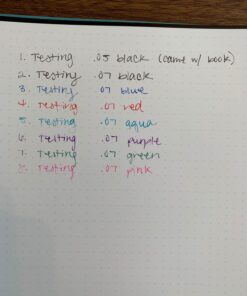 1. Testing .05 black (came w/ book)
2. Testing .07 black
3. Testing .07 blue
4. Testing .07 red
5. Testing .07 aqua
6. Testing .07 purple
7. Testing .07 green
8. Testing .07 pink